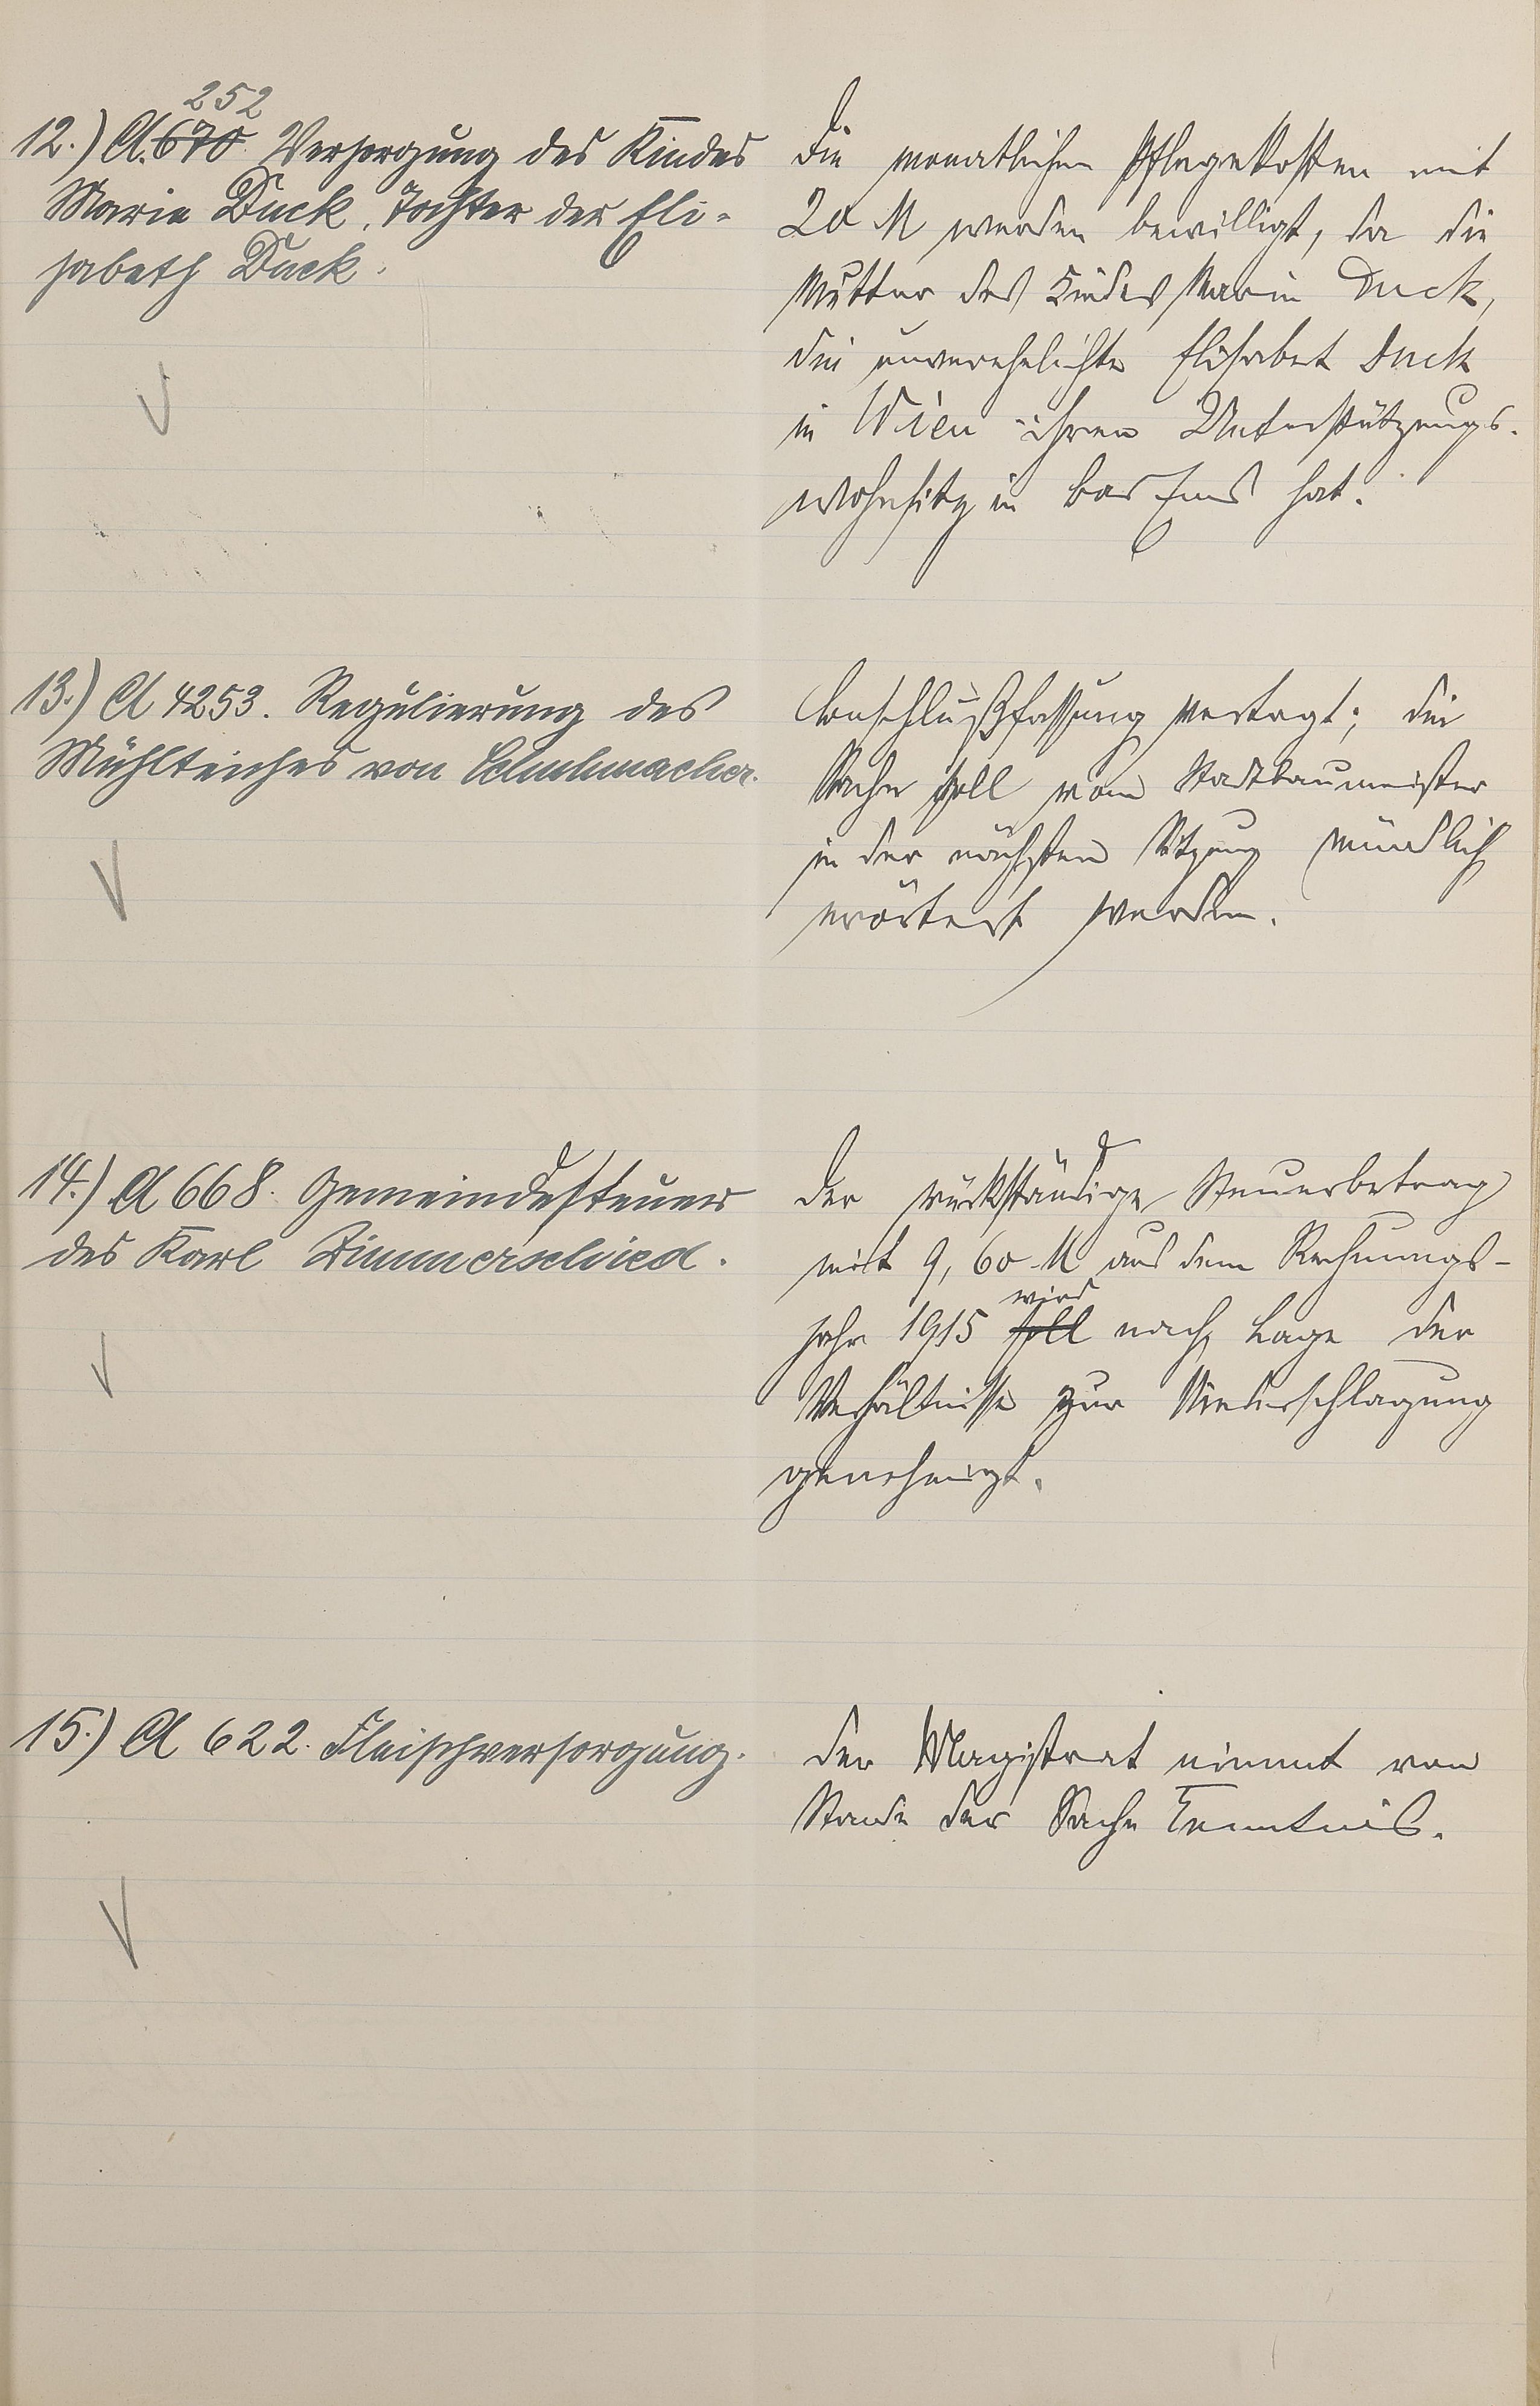 252
12.) A. 670 Versorgung des Kindes
Marie Duck, Tochter der Eli-
sabeth Duck.
Die monatlichen Pflegekosten mit
20 M werden bewilligt, da die
Mutter des Kindes Marie Duck,
die unverehelichte Elisabet Duck
in Wien ihren Unterstützungs-
wohnsitz in Bad Ems hat.
13.) A 4253. Regulierung des
Mühlteiches von Schuhmacher.
Beschlußfassung vertagt; die
Sache soll vom Stadtbaumeister
in der nächsten Sitzung mündlich
erörtert werden.
14.) A 668. Gemeindesteuer
des Karl Zimmerschied.
Der rückständige Steuerbetrag
mit 9,60 M aus dem Rechnungs-
wird
jahr 1915 soll nach Lage der
Verhältnisse zur Niederschlagung
genehmigt.
15.) A 622. Fleischversorgung.
Der Magistrat nimmt vom
Stande der Sache Kenntnis.